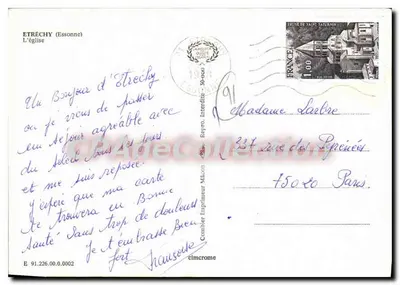 ETRÉCHY (Essonne)
L'église
Un Bonjour d'Etrechy
ou je viens de passer
un sejour agréable avec
du soleil tous les jours
et me suis reposée.
J'espère que ma carte
te trouvera en Bonne
santé sans trop de douleurs
Je t'embrasse bien
fort Françoise
E 91.226.00.0.0002
Combier Imprimeur Mâcon
Repro. Interdite
cimcrome
FRANCE
1,00
91
Madame Larbre
237 rue des Pyrénées
75020 Paris
CPACollection